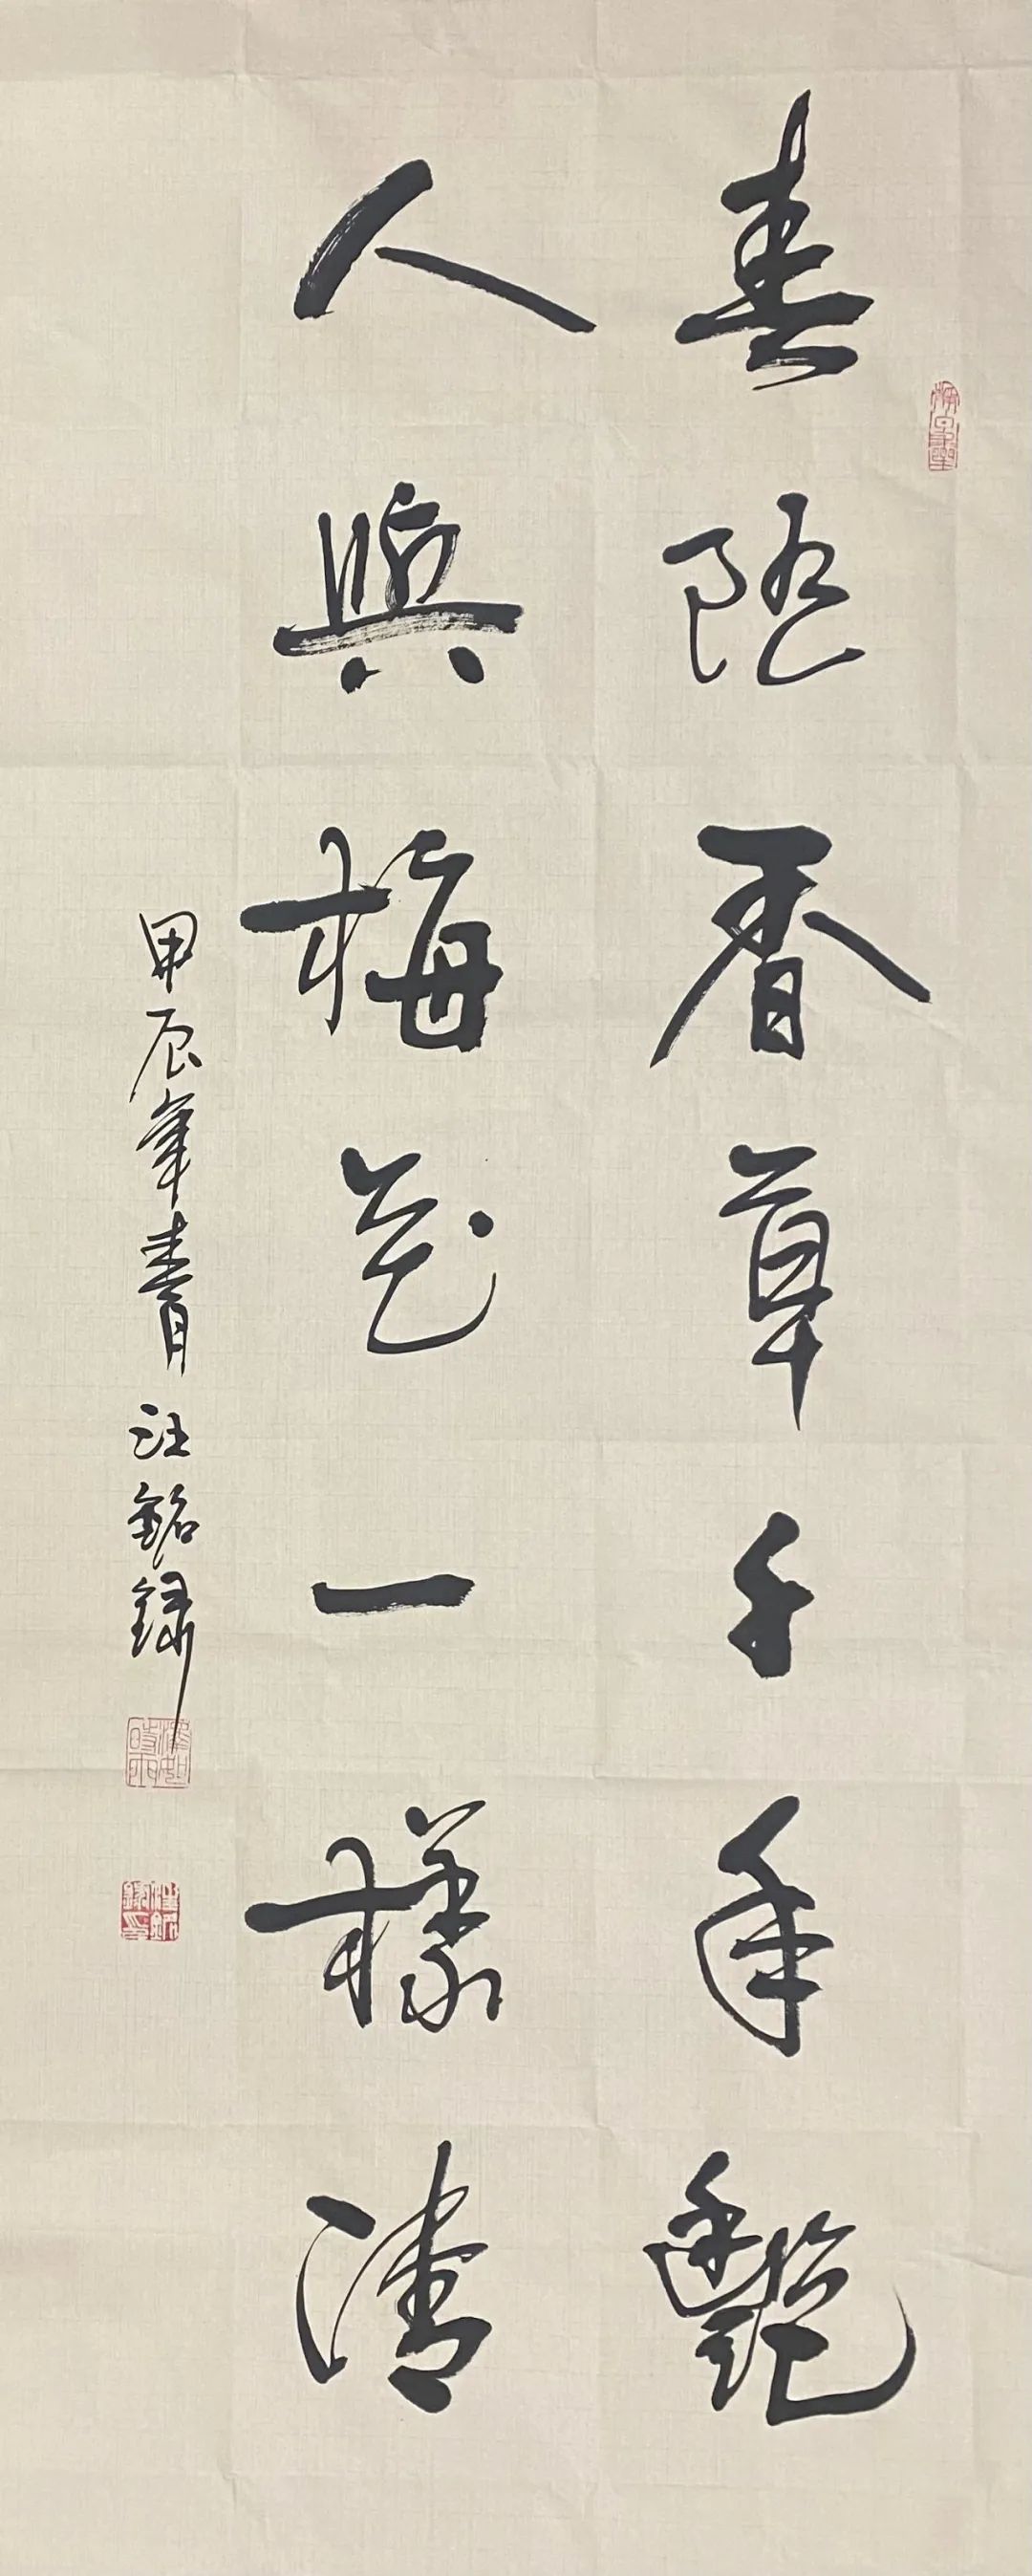 春随香草千年艷
人與梅花一樣清
甲辰年春月 汪銘録